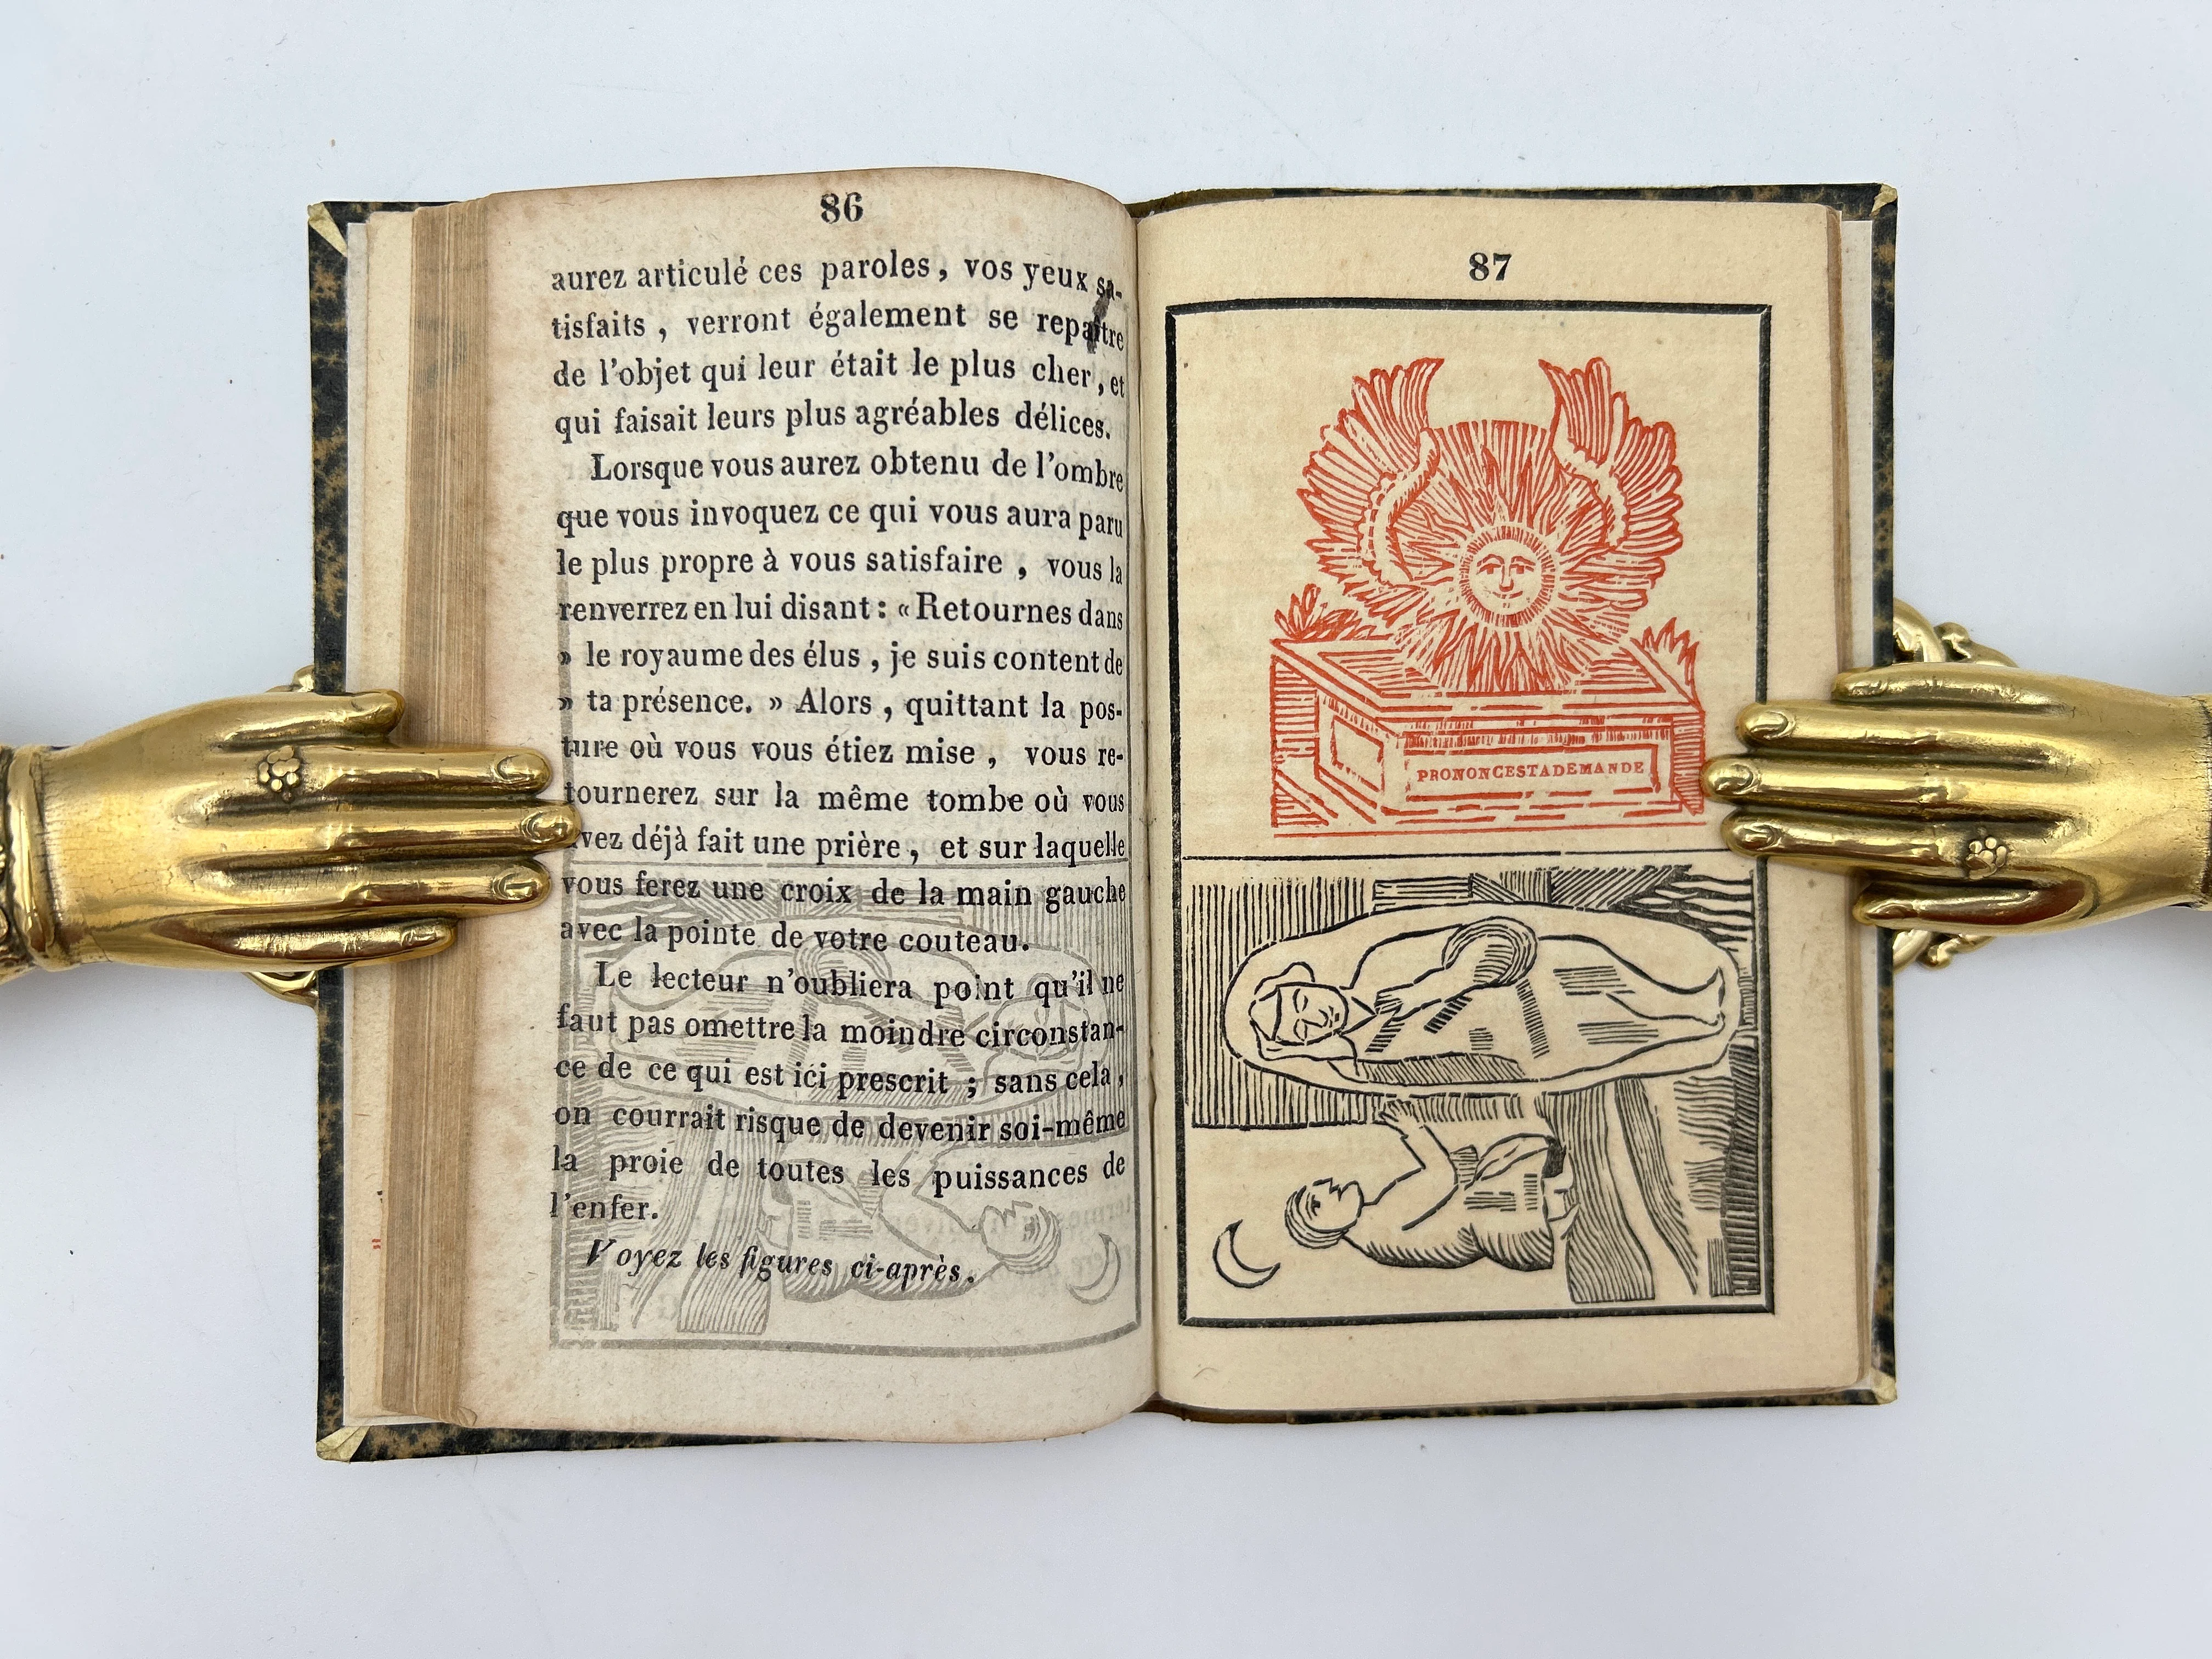 86
aurez articulé ces paroles , vos yeux sa-
tisfaits , verront également se repaître
de l'objet qui leur était le plus cher , et
qui faisait leurs plus agréables délices.
Lorsque vous aurez obtenu de l'ombre
que vous invoquez ce qui vous aura paru
le plus propre à vous satisfaire , vous la
renverrez en lui disant : « Retournes dans
» le royaume des élus , je suis content de
» ta présence. » Alors , quittant la pos-
ture où vous vous étiez mise , vous re-
tournerez sur la même tombe où vous
avez déjà fait une prière , et sur laquelle
vous ferez une croix de la main gauche
avec la pointe de votre couteau.
Le lecteur n'oubliera point qu'il ne
faut pas omettre la moindre circonstan-
ce de ce qui est ici prescrit ; sans cela ,
on courrait risque de devenir soi-même
la proie de toutes les puissances de
l'enfer.
Voyez les figures ci-après.
87
PRONONCESTADEMANDE